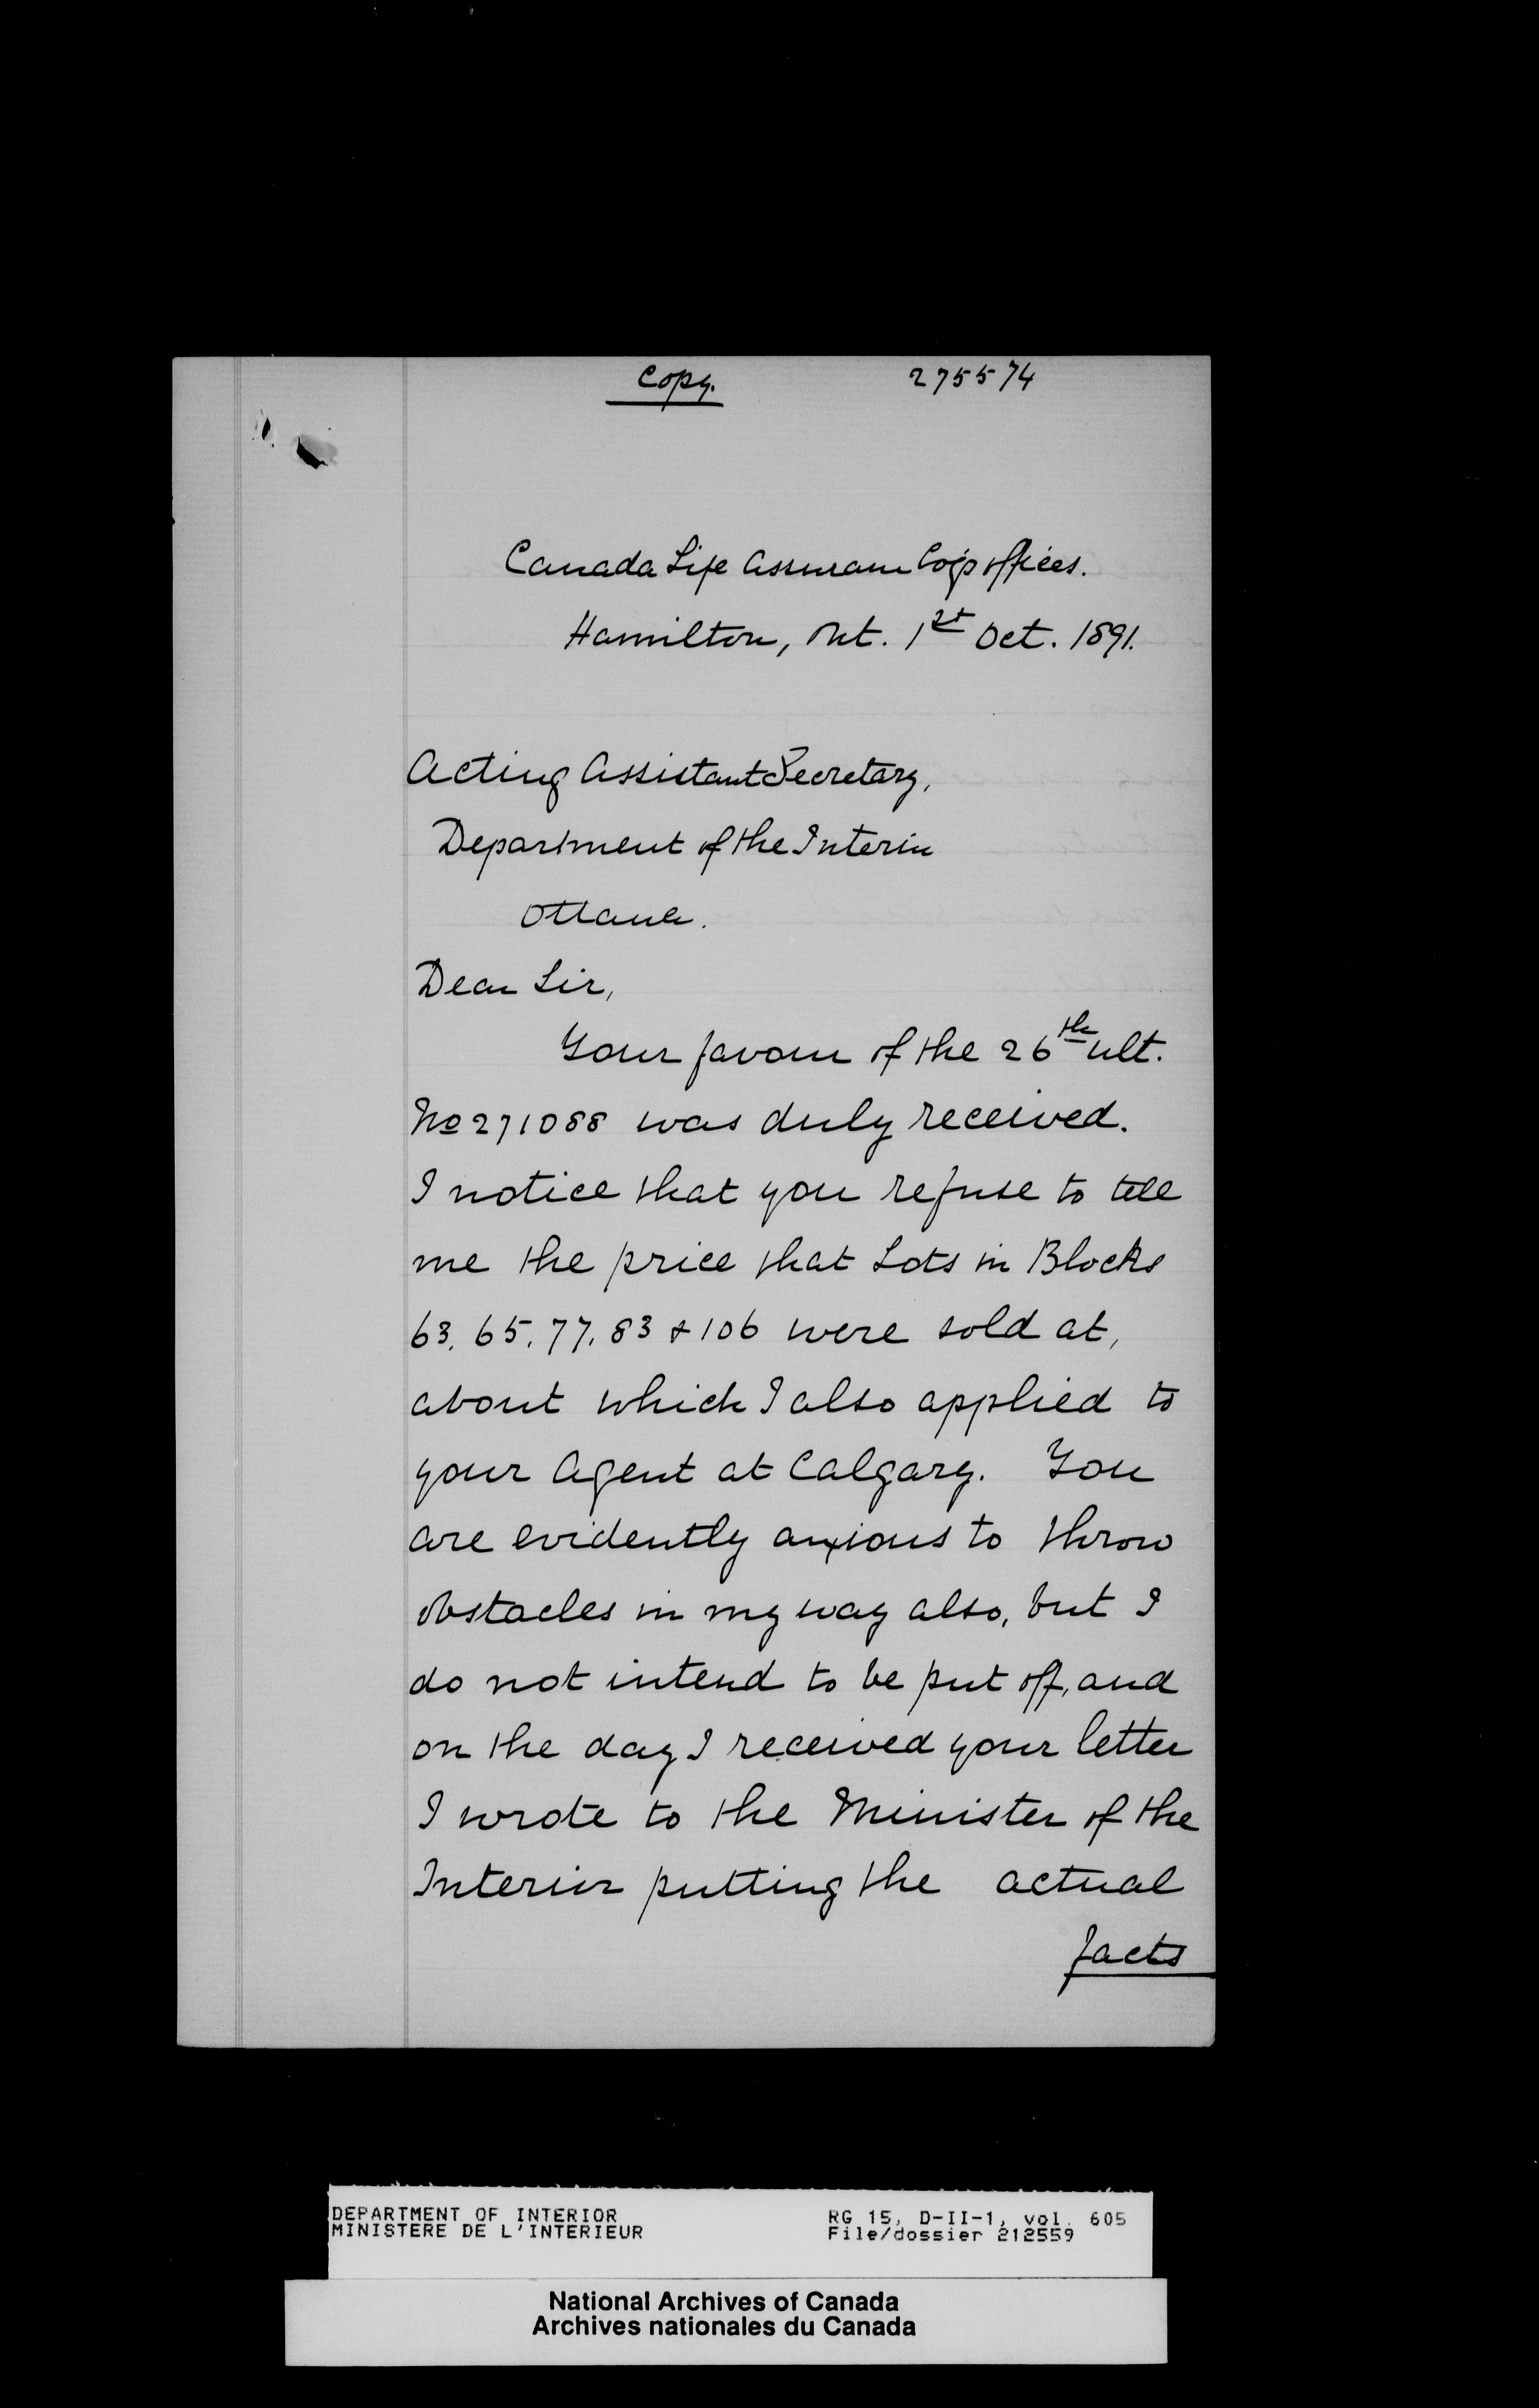 Copy. 275574
Canada Life Assurance Co'ps offices.
Hamilton, Ont. 1st Oct. 1891.
Acting Assistant Secretary,
Department of the Interior
Ottawa.
Dear Sir,
Your favour of the 26th ult.
No 271088 was duly received.
I notice that you refuse to tell
me the price that Lots in Blocks
63, 65, 77, 83 & 106 were sold at,
about which I also applied to
your Agent at Calgary. You
are evidently anxious to throw
obstacles in my way also, but I
do not intend to be put off, and
on the day I received your letter
I wrote to the Minister of the
Interior putting the actual
facts
DEPARTMENT OF INTERIOR RG 15, D-II-1, vol. 605
MINISTERE DE L'INTERIEUR File/dossier 212559
National Archives of Canada
Archives nationales du Canada